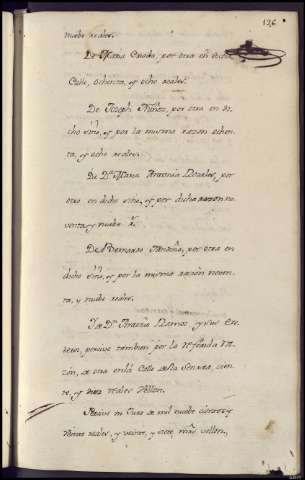 126
nuebe reales.
De Maria Casado, por otra en dicha
Calle, ochenta, y ocho reales.
De Joseph Nuñez, por otra en di-
cho sitio, y por la misma razon ochen-
ta, y ocho reales.
De Dª Maria Antonia Rosales, por
otra en dicho sitio, y por dicha razon no-
venta, y nuebe rˢ.
De Bernardo Mendoño, por otra en
dicho sitio, y por la misma razon noven-
ta, y nuebe reales.
Y de Dⁿ Antonio Ramos y sus Ere-
deros, percive tambien por la referida ra-
zon, de otra en la Calle de la
to, y diez reales vellon.
mil nuebe cientos y
reales, y veinte, y siete mrs vellon.